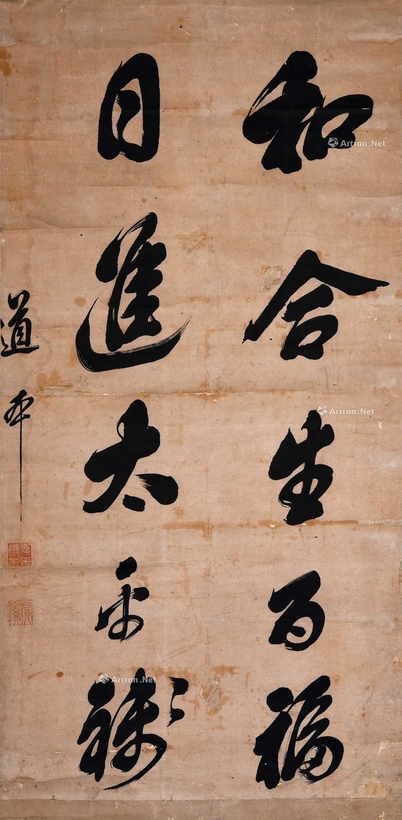 和合生百福
日進太平錢
道本
Artron.Net
Artron.Net
Artron.Net